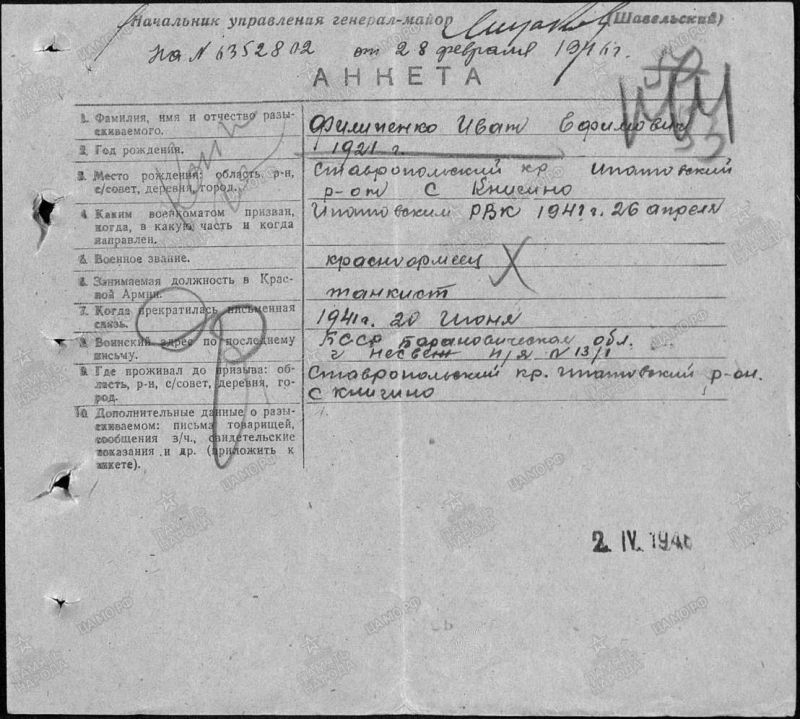 Начальник управления генерал-майор (Шавельский)
на N 6352802 от 28 февраля 1946 г.
АНКЕТА
1. Фамилия, имя и отчество разы-
скиваемого.
Филипенко Иван Ефимович
2. Год рождения.
1921 г.
3. Место рождения: область, р-н,
с/совет, деревня, город.
Ставропольский кр Ипатовский
р-он с Книгино
4. Каким военкоматом призван,
когда, в какую часть и когда
направлен.
Ипатовским РВК 1941 г. 26 апреля
5. Военное звание.
красноармеец
6. Занимаемая должность в Крас-
ной Армии.
танкист
7. Когда прекратилась письменная
связь.
1941 г. 20 Июня
8. Воинский адрес по последнему
письму.
БССР Барановическая обл.
г Несвеж п/я N 13/1
9. Где проживал до призыва: об-
ласть, р-н, с/совет, деревня, го-
род.
Ставропольский кр. Ипатовский р-он.
с Книгино
10. Дополнительные данные о разы-
скиваемом: письма товарищей,
сообщения в/ч., свидетельские
показания и др. (приложить к
анкете).
2. IV. 1946